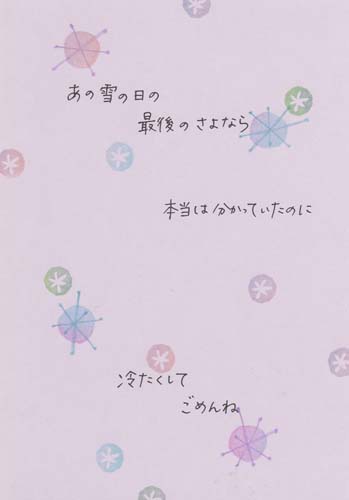 あの雪の日の
最後のさよなら
本当は分かっていたのに
冷たくして
ごめんね